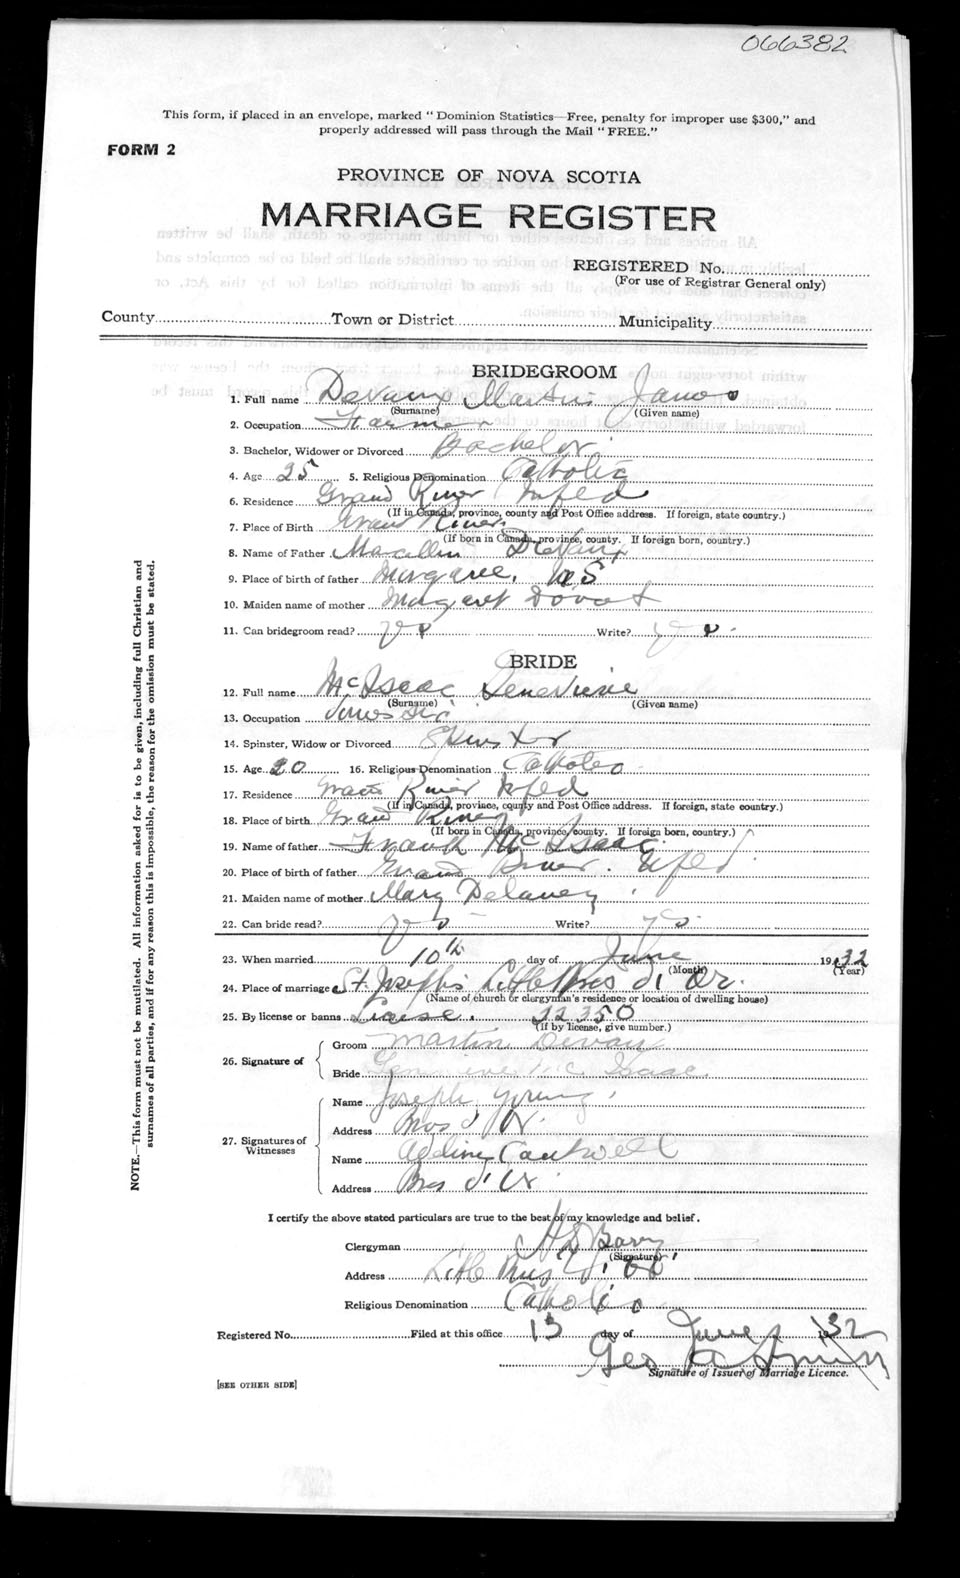 066382
This form, if placed in an envelope, marked "Dominion Statistics—Free, penalty for improper use $300," and
properly addressed will pass through the Mail "FREE."
FORM 2
PROVINCE OF NOVA SCOTIA
MARRIAGE REGISTER
REGISTERED No.
(For use of Registrar General only)
County Town or District Municipality
BRIDEGROOM
1. Full name Martin James
(Surname) (Given name)
2. Occupation Farmer
3. Bachelor, Widower or Divorced Bachelor
4. Age 25 5. Religious Denomination Catholic
6. Residence Grand River Nfld
(If in Canada, province, county and Post Office address. If foreign, state country.)
7. Place of Birth Grand River
(If born in Canada, province, county. If foreign born, country.)
8. Name of Father
9. Place of birth of father Margaree, N.S
10. Maiden name of mother Margaret
11. Can bridegroom read? Write?
BRIDE
12. Full name McIsaac Genevieve
(Surname) (Given name)
13. Occupation
14. Spinster, Widow or Divorced Spinster
15. Age 20 16. Religious Denomination Catholic
17. Residence Grand River Nfld
(If in Canada, province, county and Post Office address. If foreign, state country.)
18. Place of birth Grand River
(If born in Canada, province, county. If foreign born, country.)
19. Name of father Frank McIsaac
20. Place of birth of father Grand River. Nfld
21. Maiden name of mother Mary Delaney
22. Can bride read? Write? yes
23. When married 10th day of June 1932
(Month) (Year)
24. Place of marriage St. Joseph's Little Bras d'Or.
(Name of church or clergyman's residence or location of dwelling house)
25. By license or banns 22350
(If by license, give number.)
26. Signature of
Groom Martin Devau
Bride Genevieve McIsaac
27. Signatures of
Witnesses
Name Joseph Young
Address Bras d'Or
Name Cantwell
Address Bras d'Or
I certify the above stated particulars are true to the best of my knowledge and belief.
Clergyman Barry
(Signature)
Address Little Bras d'Or
Religious Denomination Catholic
Registered No. Filed at this office 13 day of June 1932
Geo
Signature of Issuer of Marriage Licence.
[SEE OTHER SIDE]
NOTE.—This form must not be mutilated. All information asked for is to be given, including full Christian and
surnames of all parties, and if for any reason this is impossible, the reason for the omission must be stated.